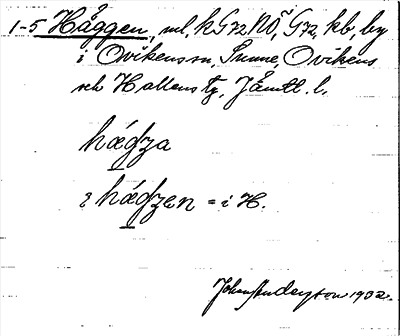 1-5 Häggen, ml, kG72NÖ, G72, kb, by
i Ovikens sn, Sunne, Ovikens
och Hallens tg, Jämtl. l.
hágza
i hágzen = i H.
Johan Anderson 1902.